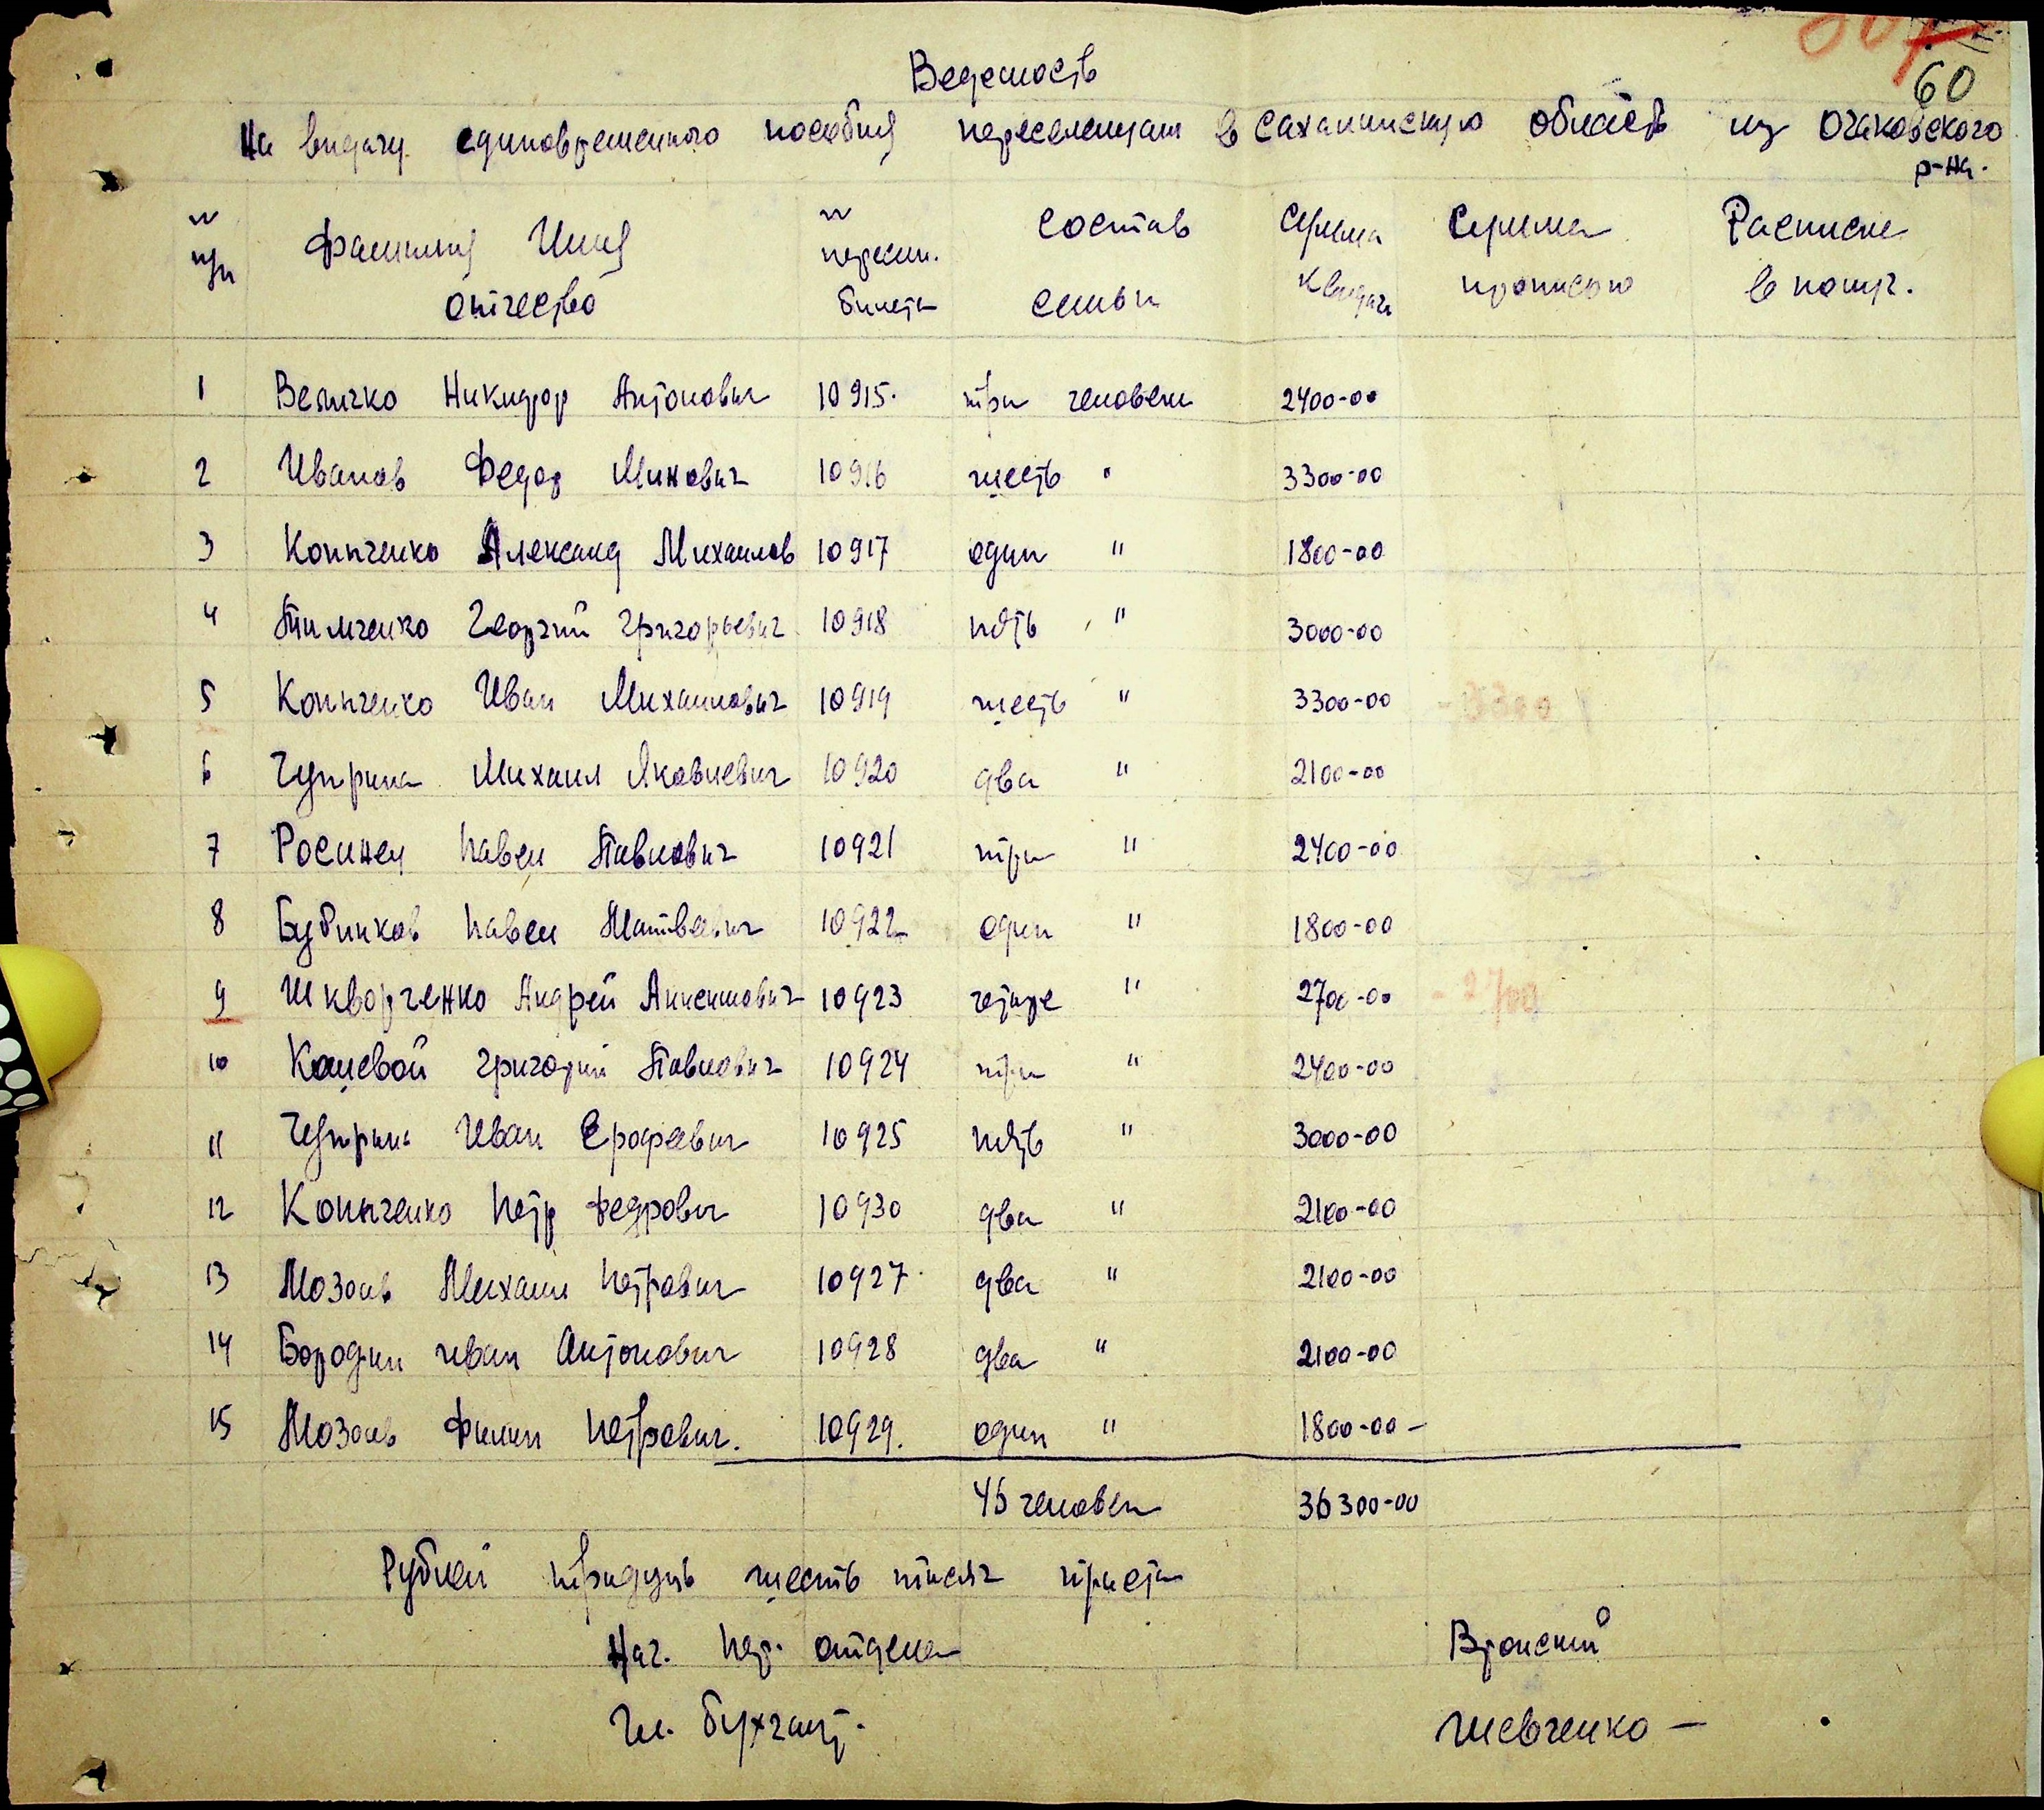 60
Ведемость
На выдачу единовременного пособия переселенцам в Сахалинскую область из Очаковского
р-на.
№ п/п Фамилия Имя отчество № пересел. билета Состав семьи Сумма к выдаче Сумма прописью Расписк в получ.
1 Величко Никифор Антонович 10915. три человека 2400-00
2 Иванов Федор Минович 10916 шесть " 3300-00
3 Копыченко Александ Михаилов 10917 один " 1800-00
4 Тимченко Георгий Григорьевич 10918 пять " 3000-00
5 Копыченко Иван Михаилович 10919 шесть " 3300-00 - 3300
6 Чуприна Михаил Яковлевич 10920 два " 2100-00
7 Росинец Павел Павлович 10921 три " 2400-00
8 Бубликов Павел Матвеевич 10922 один " 1800-00
9 Шкворченко Андрей Анисимович 10923 четыре " 2700-00 - 2700
10 Кошевой Григорий Павлович 10924 три " 2400-00
11 Чуприна Иван Ерофеевич 10925 пять " 3000-00
12 Копыченко Петр Федрович 10930 два " 2100-00
13 Мозоль Михаил Петрович 10927 два " 2100-00
14 Бородин Иван Антонович 10928 два " 2100-00
15 Мозоль Филип Петрович. 10929. один " 1800-00 -
46 человек 36300-00
Рублей тридцать шесть тысяч триста
Нач. Пер. отдела Вронский
Гл. бухгалт. Шевченко -